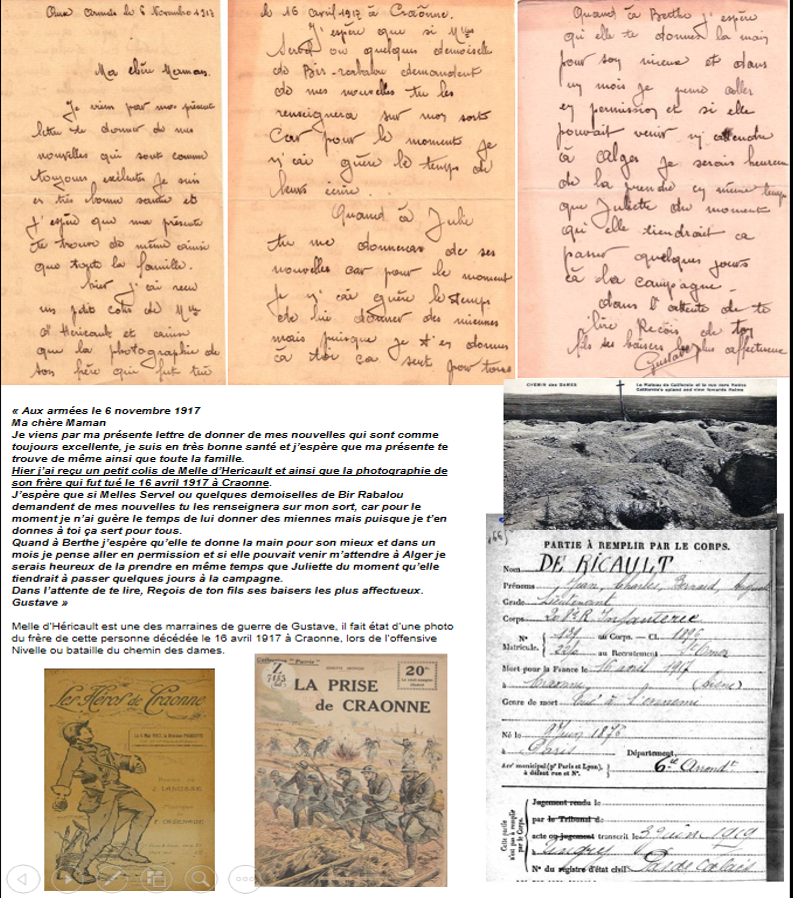 Aux armées le 6 Novembre 1917
Ma chère Maman.
Je viens par ma présent
lettre te donner de mes
nouvelles qui sont comme
toujours exélentes Je suis
en très bonne santé et
j'espère que ma présente
te trouve de même ainsi
que toute la famille.
hier j'ai reçu
un petit colis de Mlle
d'Hericault et ainsi
que la photographie de
son frère qui fut tué
le 16 avril 1917 à Craônne.
J'espère que si Mlles
Servel ou quelques demoiselle
de Bir-rabalou demandent
de mes nouvelles tu les
renseignera sur mon sort
Car pour le moment je
n'ai guère le temps de
leurs écrire...
Quand à Julie
tu me donneras de ses
nouvelles car pour le moment
Je n'ai guère le temps
de lui donner des miennes
mais puisque je t'en donnes
à toi ça sert pour tous
Quand à Berthe j'espère
qu'elle te donne la main
pour son mieux et dans
un mois je pense aller
en permission et si elle
pouvait venir m'attendre
à Alger je serais heureux
de la prendre en même temps
que Juliette du moment
qu'elle tiendrait ça
passer quelques jours
à la campagne -
dans l'attente de te
lire Reçois de ton
fils ses baisers les plus affectueux
Gustave
CHEMIN des DAMES
Le Plateau de Californie et la vue vers Reims
California's upland and view towards Reims
« Aux armées le 6 novembre 1917
Ma chère Maman
Je viens par ma présente lettre de donner de mes nouvelles qui sont comme
toujours excellente, je suis en très bonne santé et j'espère que ma présente te
trouve de même ainsi que toute la famille.
Hier j'ai reçu un petit colis de Melle d'Hericault et ainsi que la photographie de
son frère qui fut tué le 16 avril 1917 à Craonne.
J'espère que si Melles Servel ou quelques demoiselles de Bir Rabalou
demandent de mes nouvelles tu les renseignera sur mon sort, car pour le
moment je n'ai guère le temps de lui donner des miennes mais puisque je t'en
donnes à toi ça sert pour tous.
Quand à Berthe j'espère qu'elle te donne la main pour son mieux et dans un
mois je pense aller en permission et si elle pouvait venir m'attendre à Alger je
serais heureux de la prendre en même temps que Juliette du moment qu'elle
tiendrait à passer quelques jours à la campagne.
Dans l'attente de te lire, Reçois de ton fils ses baisers les plus affectueux.
Gustave »
Melle d'Héricault est une des marraines de guerre de Gustave, il fait état d'une photo
du frère de cette personne décédée le 16 avril 1917 à Craonne, lors de l'offensive
Nivelle ou bataille du chemin des dames.
PARTIE À REMPLIR PAR LE CORPS.
Nom DE RICAULT
Prénoms Jean, Charles, Bernard,
Grade Lieutenant
Corps R Infanterie
N° Matricule. au Corps. — Cl. 1896
au Recrutement St Omer
Mort pour la France le 16 avril 1917
à Craonne (Aisne)
Genre de mort Tué à l'ennemi
Né le Juin 1876
à Paris Département
Arrt municipal (pr Paris et Lyon), à défaut rue et N°. 6e Arrondt
Cette partie n'est pas à remplir par le Corps.
Jugement rendu le
par le Tribunal de
acte ou jugement transcrit le 3 juin 1919
à Tingry
N° du registre d'état civil Pas de Calais
Les Héros de Craonne
J. LANOSSE
Musique de
Collection "Patrie"
20c
LA PRISE
de CRAONNE